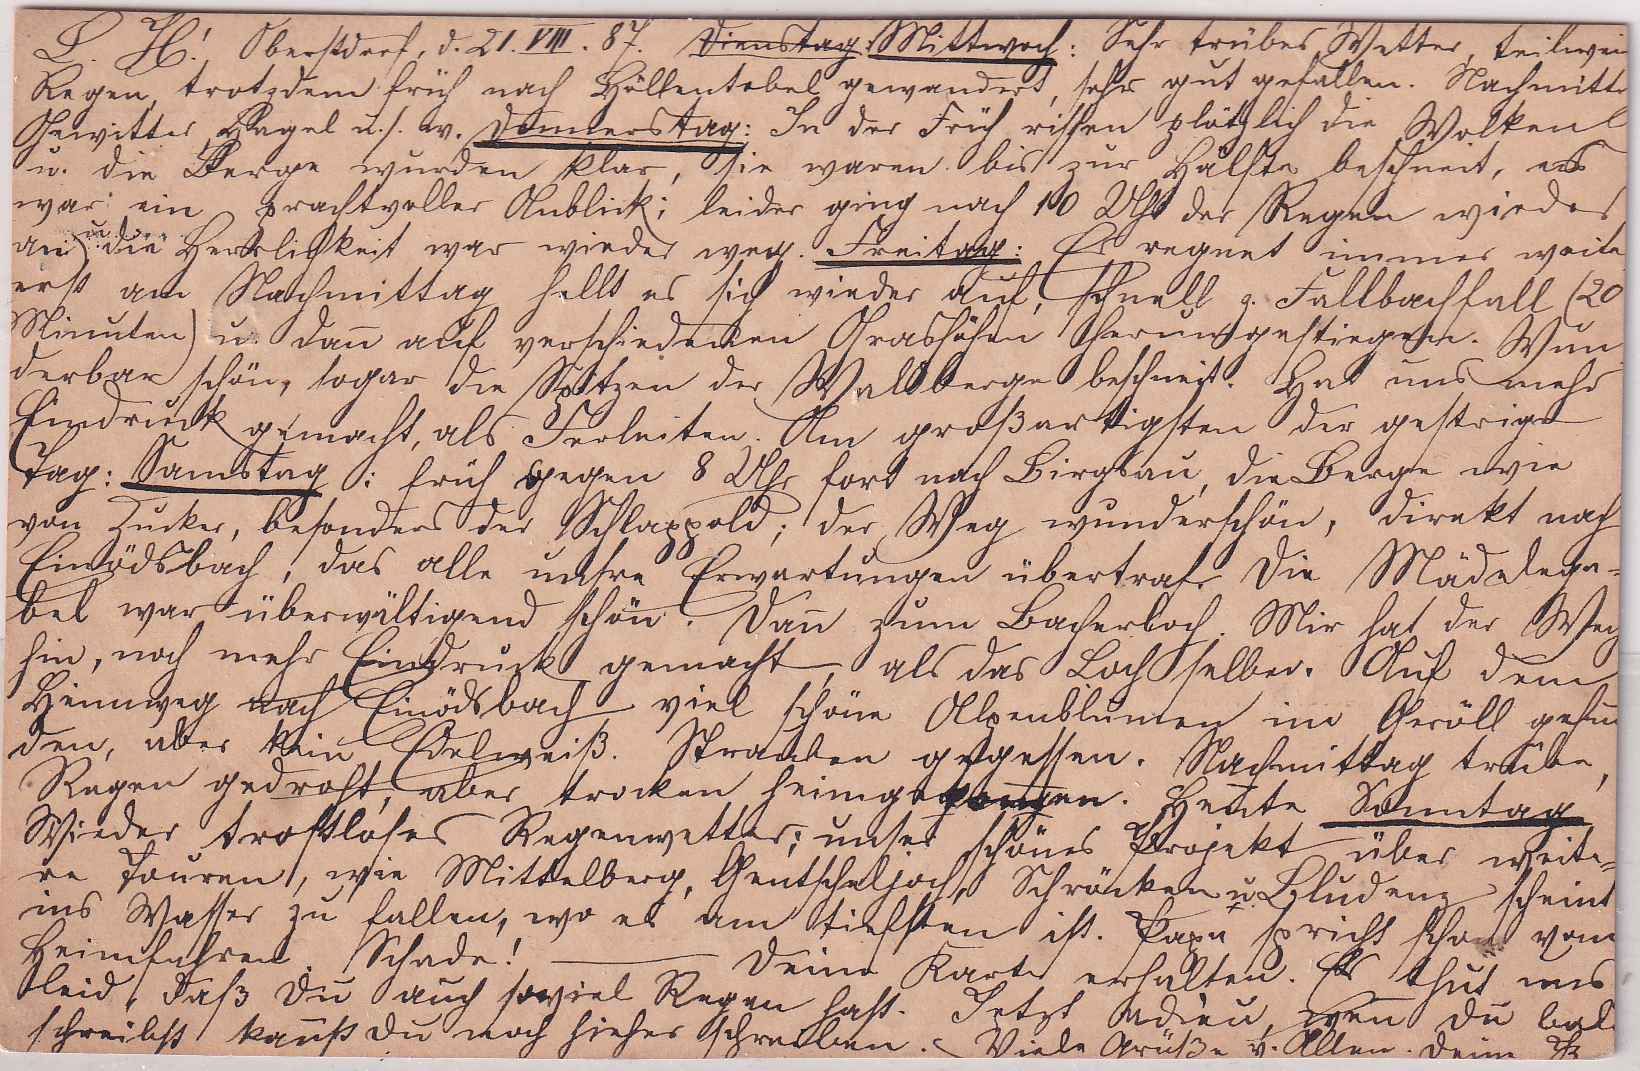 L. H! Oberstdorf, d. 21. VIII. 87. Dienstag, Mittwoch: Sehr trübes Wetter, teilwei
Regen, trotzdem früh nach Höllentobel gewandert, sehr gut gefallen. Nachmitt
Gewitter, Hagel u. s. w. Donnerstag: In der Früh rissen plötzlich die Wolken
u. die Berge wurden klar, sie waren bis zur Hälfte beschneit, es
war ein prachtvoller Anblick; leider ging nach 10 Uhr der Regen wieder
an u. die Herrlichkeit war wieder weg. Freitag: Es regnet immer weite
erst am Nachmittag hellt es sich wieder auf, schnell z. Fallbachfall (20
Minuten) u. dan̅ auf verschiedenen Grashöhen herumgestiegen. Wun
derbar schön, sogar die Spitzen der Waldberge beschneit. Hat uns mehr
Eindruck gemacht, als Ferleiten. Am großartigsten der gestrige
Tag: Samstag: früh gegen 8 Uhr fort nach Birgsau, die Berge wie
von Zucker, besonders der Schlappold; der Weg wunderschön, direkt nach
Einödsbach, das alle unsre Erwartungen übertraf. Die Mädelega-
bel war überwältigend schön. Dan̅ zum Bacherloch. Mir hat der Weg
hin, noch mehr Eindruck gemacht, als das Loch selber. Auf dem
Heimweg nach Einödsbach viel schöne Alpenblumen im Geröll gefun
den, aber kein Edelweiß. Strauben gegessen. Nachmittag trübe,
Regen gedroht, aber trocken heimgegangen. Heute Sonntag
Wieder trostloses Regenwetter; unser schönes Projekt über weite-
re Touren, wie Mittelberg, Gentscheljoch, Schröcken u. Bludenz scheint
ins Wasser zu fallen, wo es am tiefsten ist. Papa spricht schon vom
Heimfahren. Schade! — Deine Karte erhalten. Es thut uns
leid, daß Du auch soviel Regen hast. Jetzt adieu, wen̅ Du bald
schreibst kan̅st Du noch hieher schreiben. Viele Grüße v. Allen. Deine